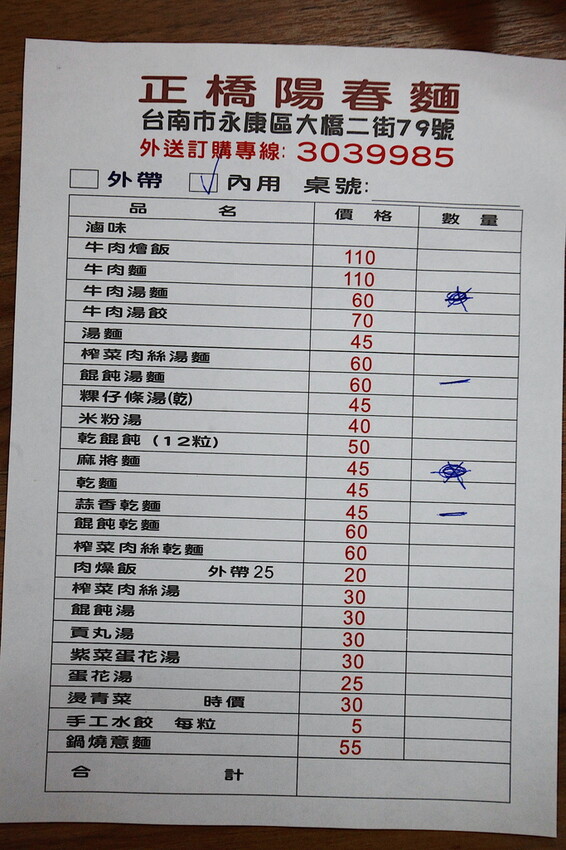 正橋陽春麵
台南市永康區大橋二街79號
外送訂購專線: 3039985
外帶 內用 桌號:
品名 價格 數量
滷味
牛肉燴飯 110
牛肉麵 110
牛肉湯麵 60
牛肉湯餃 70
湯麵 45
榨菜肉絲湯麵 60
餛飩湯麵 60 一
粿仔條湯(乾) 45
米粉湯 40
乾餛飩(12粒) 50
麻將麵 45
乾麵 45
蒜香乾麵 45 一
餛飩乾麵 60
榨菜肉絲乾麵 60
肉燥飯 外帶25 20
榨菜肉絲湯 30
餛飩湯 30
貢丸湯 30
紫菜蛋花湯 30
蛋花湯 25
燙青菜 時價 30
手工水餃 每粒 5
鍋燒意麵 55
合計